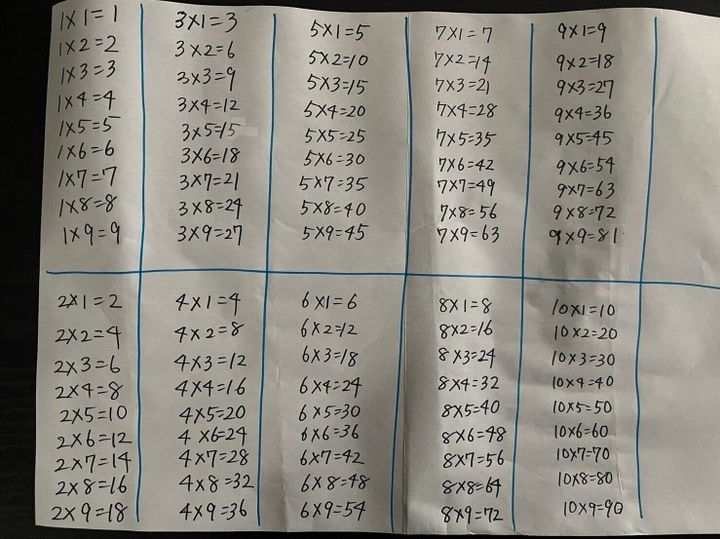 1×1=1
1×2=2
1×3=3
1×4=4
1×5=5
1×6=6
1×7=7
1×8=8
1×9=9
3×1=3
3×2=6
3×3=9
3×4=12
3×5=15
3×6=18
3×7=21
3×8=24
3×9=27
5×1=5
5×2=10
5×3=15
5×4=20
5×5=25
5×6=30
5×7=35
5×8=40
5×9=45
7×1=7
7×2=14
7×3=21
7×4=28
7×5=35
7×6=42
7×7=49
7×8=56
7×9=63
9×1=9
9×2=18
9×3=27
9×4=36
9×5=45
9×6=54
9×7=63
9×8=72
9×9=81
2×1=2
2×2=4
2×3=6
2×4=8
2×5=10
2×6=12
2×7=14
2×8=16
2×9=18
4×1=4
4×2=8
4×3=12
4×4=16
4×5=20
4×6=24
4×7=28
4×8=32
4×9=36
6×1=6
6×2=12
6×3=18
6×4=24
6×5=30
6×6=36
6×7=42
6×8=48
6×9=54
8×1=8
8×2=16
8×3=24
8×4=32
8×5=40
8×6=48
8×7=56
8×8=64
8×9=72
10×1=10
10×2=20
10×3=30
10×4=40
10×5=50
10×6=60
10×7=70
10×8=80
10×9=90